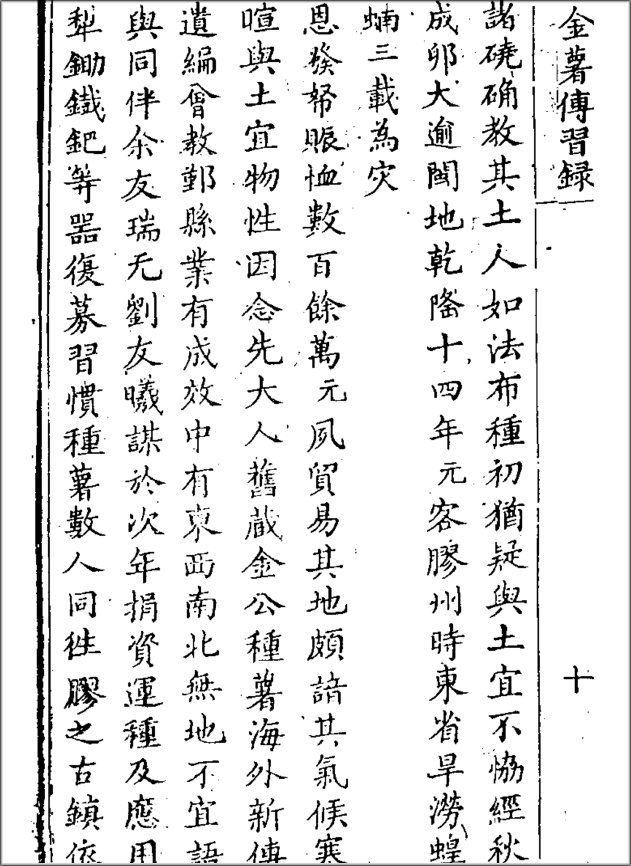 金薯傳習録 十
諸磽确教其土人如法布種初猶疑與土宜不恊經秋
成卵大逾閩地乾隆十四年元客膠州時東省旱澇蝗
蝻三載為灾
恩發帑賑恤數百餘萬元夙貿易其地頗諳其氣候寒
暄與土宜物性因念先大人舊蔵金公種薯海外新傳
遺編曾教鄞縣業有成效中有東西南北無地不宜語
與同伴余友瑞元劉友曦謀於次年捐資運種及應用
犁鋤鐡鈀等器復募習慣種薯數人同徃膠之古鎮依